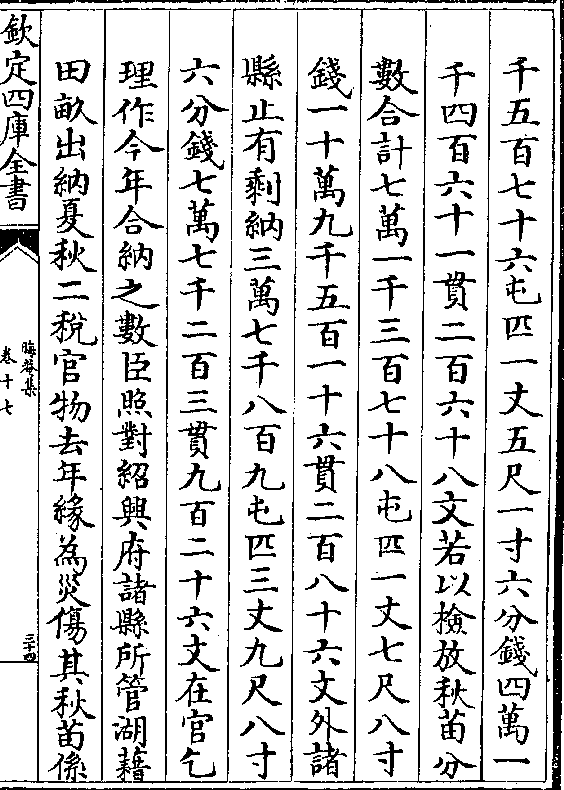 千五百七十六屯匹一丈五尺一寸六分錢四萬一
千四百六十一貫二百六十八文若以檢放秋苗分
數合計七萬一千三百七十八屯匹一丈七尺八寸
錢一十萬九千五百一十六貫二百八十六文外諸
縣止有剩納三萬七千八百九屯匹三丈九尺八寸
六分錢七萬七千二百三貫九百二十六文在官乞
理作今年合納之數臣照對紹興府諸縣所管湖藉
田畝出納夏秋二稅官物去年緣為災傷其秋苗係
欽定四庫全書
晦菴集
卷十七
三十四